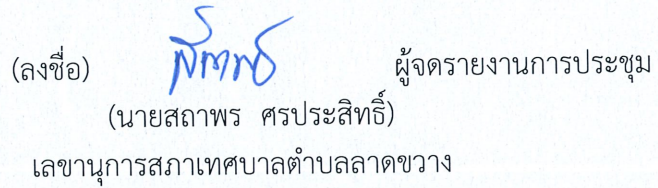 (ลงชื่อ) สถาพร ผู้จดรายงานการประชุม
(นายสถาพร ศรประสิทธิ์)
เลขานุการสภาเทศบาลตำบลลาดขวาง